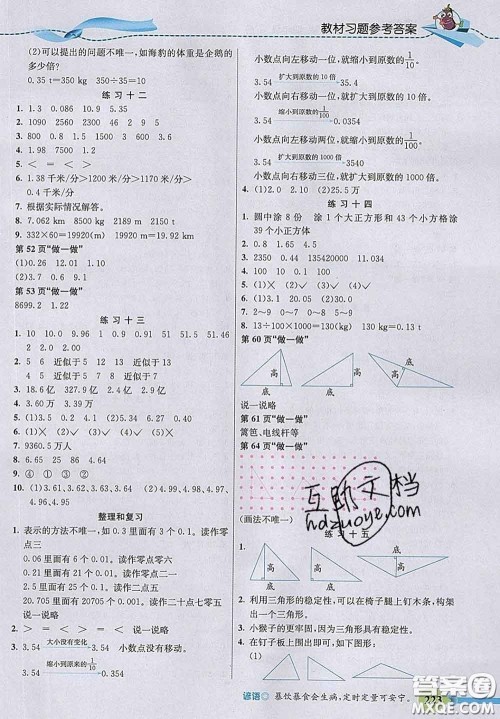 教材习题参考答案
(2)可以提出的问题不唯一,如海豹的体重是企鹅的
多少倍?
0.35 t=350 kg　350÷35=10
练习十二
1. 1.3　0.086　10.9　0.315
2. 1090　2560　2300　46　2　5
3. 800　29　900　4.5
5. <　=　<　>
6. 1.38 千米/分>1200 米/分>1170 米/分
7. 根据实际情况解答。
8. 7.062 km　8500 m　2189 m　6450 m
9. 332×60=19920(m)　19920 m=19.92 km
第 52 页“做一做”
(1)0.26　12.01　1.10
第 53 页“做一做”
8699.2　1.22
练习十三
1. 10　10.0　9.96　1　0.9　0.91　51　51.5　51.46
2. 5　近似于 5　6　近似于 5
3. 18.6亿　34.9亿　7.9亿　2.8亿
4. 3.60万　3.39万
5. (1)3.5　0.4　21.0　(2)3.42　0.29　4.10
6. (1)✕　(2)✓　(3)✕　(4)✓
7. 9360.5 万人
8. 6.58　23.65　2.50　4.00
9. ④　①　③　②
10. (2)4.95、4.96、4.97、4.98、4.99　(3)4.94、4.93、
4.92、4.91、4.90、4.89、4.88、4.87、4.86、4.85
整理和复习
1. 表示的方法不唯一,如 0.3 里面有 3 个 0.1。读作
零点三
0.06 里面有 6 个 0.01。读作零点零六
0.31 里面有 31 个 0.01。读作零点三一
0.005 里面有 5 个 0.001。读作零点零零五
20.705 里面有 20705 个 0.001。读作二十点七零五
说一说略
2. >　<　=　=　<　>
3. 3.54 大小没有变化 3.540　小数点没有移动。
3.54 缩小到原来的1/10 0.354
小数点向左移动一位,就缩小到原数的1/10。
3.54 扩大到原数的10倍 35.4
小数点向右移动一位,就扩大到原数的 10 倍。
3.54 缩小到原数的1/100 0.0354
小数点向左移动两位,就缩小到原数的1/100。
3.54 扩大到原数的1000倍 3540
小数点向右移动三位,就扩大到原数的 1000 倍。
4. (1)2.0　(2)25.5 万
练习十四
1. 圆中涂 8 份　涂 1 个大正方形和 43 个小方格　涂
39 个小正方体
2. 0.8　1.65　4.4
3. (1)✓　(2)✕　(3)✕　(4)✕
7. 2～9　0～4　5～9　0～9
8. (1)100÷1000×1300=130(kg)　130 kg=0.13 t
第 60 页“做一做”
高
底
高
底
高
底
说一说略
第 61 页“做一做”
篱笆、电线杆等
第 64 页“做一做”
(画法不唯一)
练习十五
1.
高
底
高
底
高
底
2. 利用三角形的稳定性,可以在椅子腿上钉木条,构
成三角形。
3. 小猴子的更牢固,因为三角形具有稳定性。
5. (1)
谚语　暴饮暴食会生病,定时定量可安宁。
223
互助文档
hdzuoye.com
答案圈
MXQE.COM